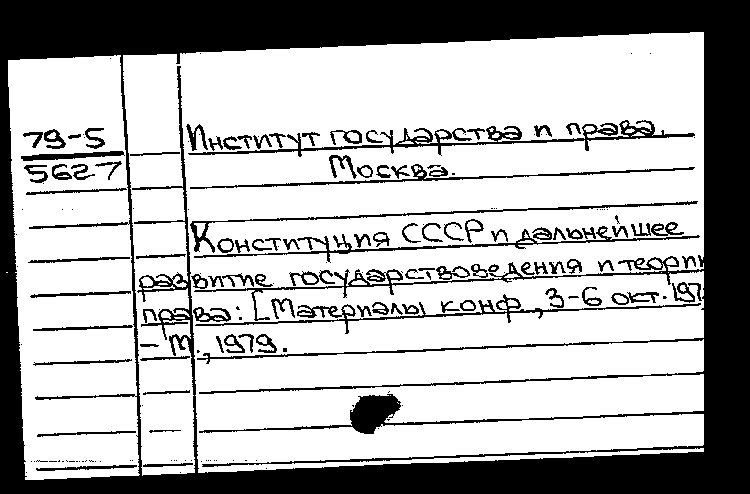 79-5
5627
Институт государства и права.
Москва.
Конституция СССР и дальнейшее
развитие государствоведения и теории
права: [Материалы конф., 3-6 окт. 197
– М., 1979.